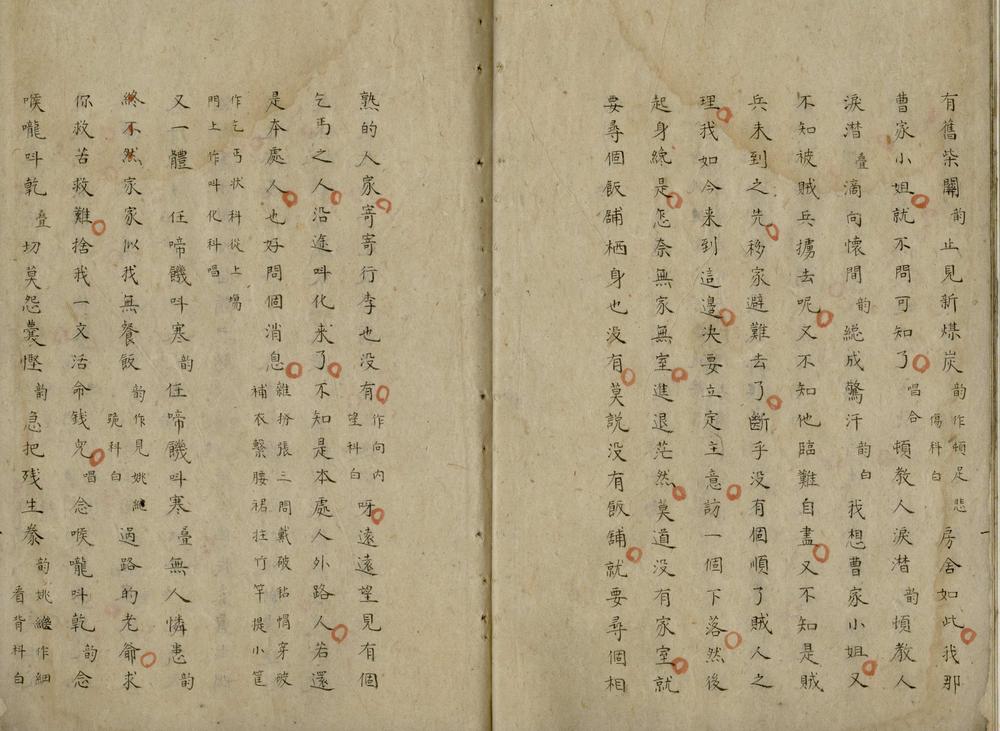 有舊柴關韵止見新煤炭韵作頓足悲傷科白房舍如此我那
曹家小姐就不問可知了唱合頓教人淚潸韵頓教人
淚潸疊滴向懷間韵總成驚汗韵白我想曹家小姐又
不知被賊兵擄去呢又不知他臨難自盡又不知是賊
兵未到之先移家避難去了斷乎没有個順了賊人之
理我如今来到這邊决要立定主意訪一個下落然後
起身纔是怎奈無家無室進退茫然莫道没有家室就
要尋個飯舖栖身也没有莫説没有飯舖就要尋個相
熟的人家寄寄行李也没有作向内望科白呀遠遠望見有個
乞丐之人沿途呌化来了不知是本處人外路人若還
是本處人也好問個消息雜扮張三問戴破毡帽穿破補衣繫腰裙拄竹竿提小筐
作乞丐状科從上塲門上作呌化科唱
又一體　任啼饑呌寒韵任啼饑呌寒疊無人憐患韵
終不然家家似我無餐飯韵作見姚繼跪科白過路的老爺求
你救苦救難捨我一文活命钱兒唱念喉嚨呌乾韵念
喉嚨呌乾疊切莫怨囊慳韵急把残生豢韵姚繼作細看背科白